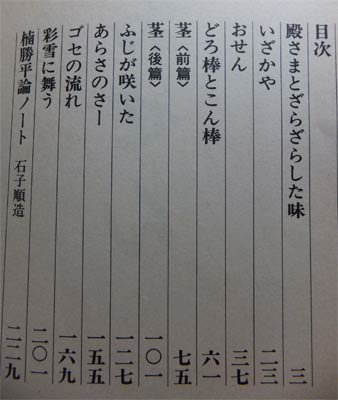 目次
殿さまとざらざらした味 三
いざかや 二三
おせん 三七
どろ棒とこん棒 六一
茎〈前篇〉 七五
茎〈後篇〉 一〇一
ふじが咲いた 一二七
あらさのさー 一五五
ゴセの流れ 一六九
彩雪に舞う 二〇一
楠勝平論ノート 石子順造 二二九